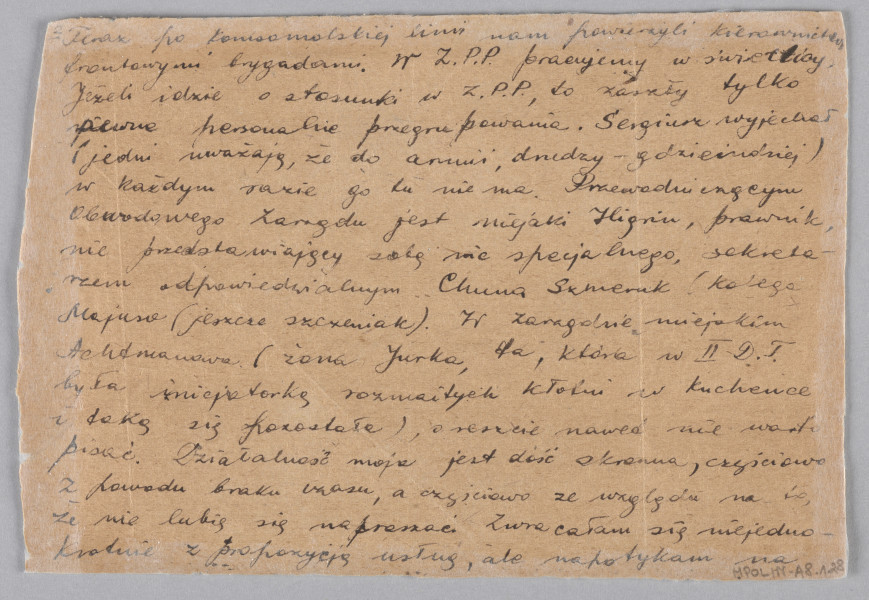 Teraz po komsomolskiej linii nam powierzyli kierownictwo
frontowymi brygadami. W Z.P.P. pracujemy w świetlicy.
Jeżeli idzie o stosunki w Z.P.P., to zaszły tylko
pewne personalne przegrupowania. Sergiusz wyjechał
(jedni uważają, że do armii, drudzy - gdzieindziej)
w każdym razie go tu nie ma. Przewodniczącym
Obwodowego Zarządu jest niejaki Iligrin, prawnik,
nie przedstawiający sobą nic specjalnego, sekreta-
rzem odpowiedzialnym Chuna Szmeruk (kolega
Majusa (jeszcze szczeniak). W zarządzie miejskim
Achtmanowa (żona Jurka, ta, która w II D.T.
była inicjatorką rozmaitych kłótni w kuchence
i taką się pozostała), o reszcie nawet nie warto
pisać. Działalność moja jest dość skromna, częściowo
z powodu braku czasu, a częściowo ze względu na to,
że nie lubię się napraszać. Zwracałam się niejedno-
krotnie z propozycją usług, ale napotykam na
MPOLIN-A8.1.28